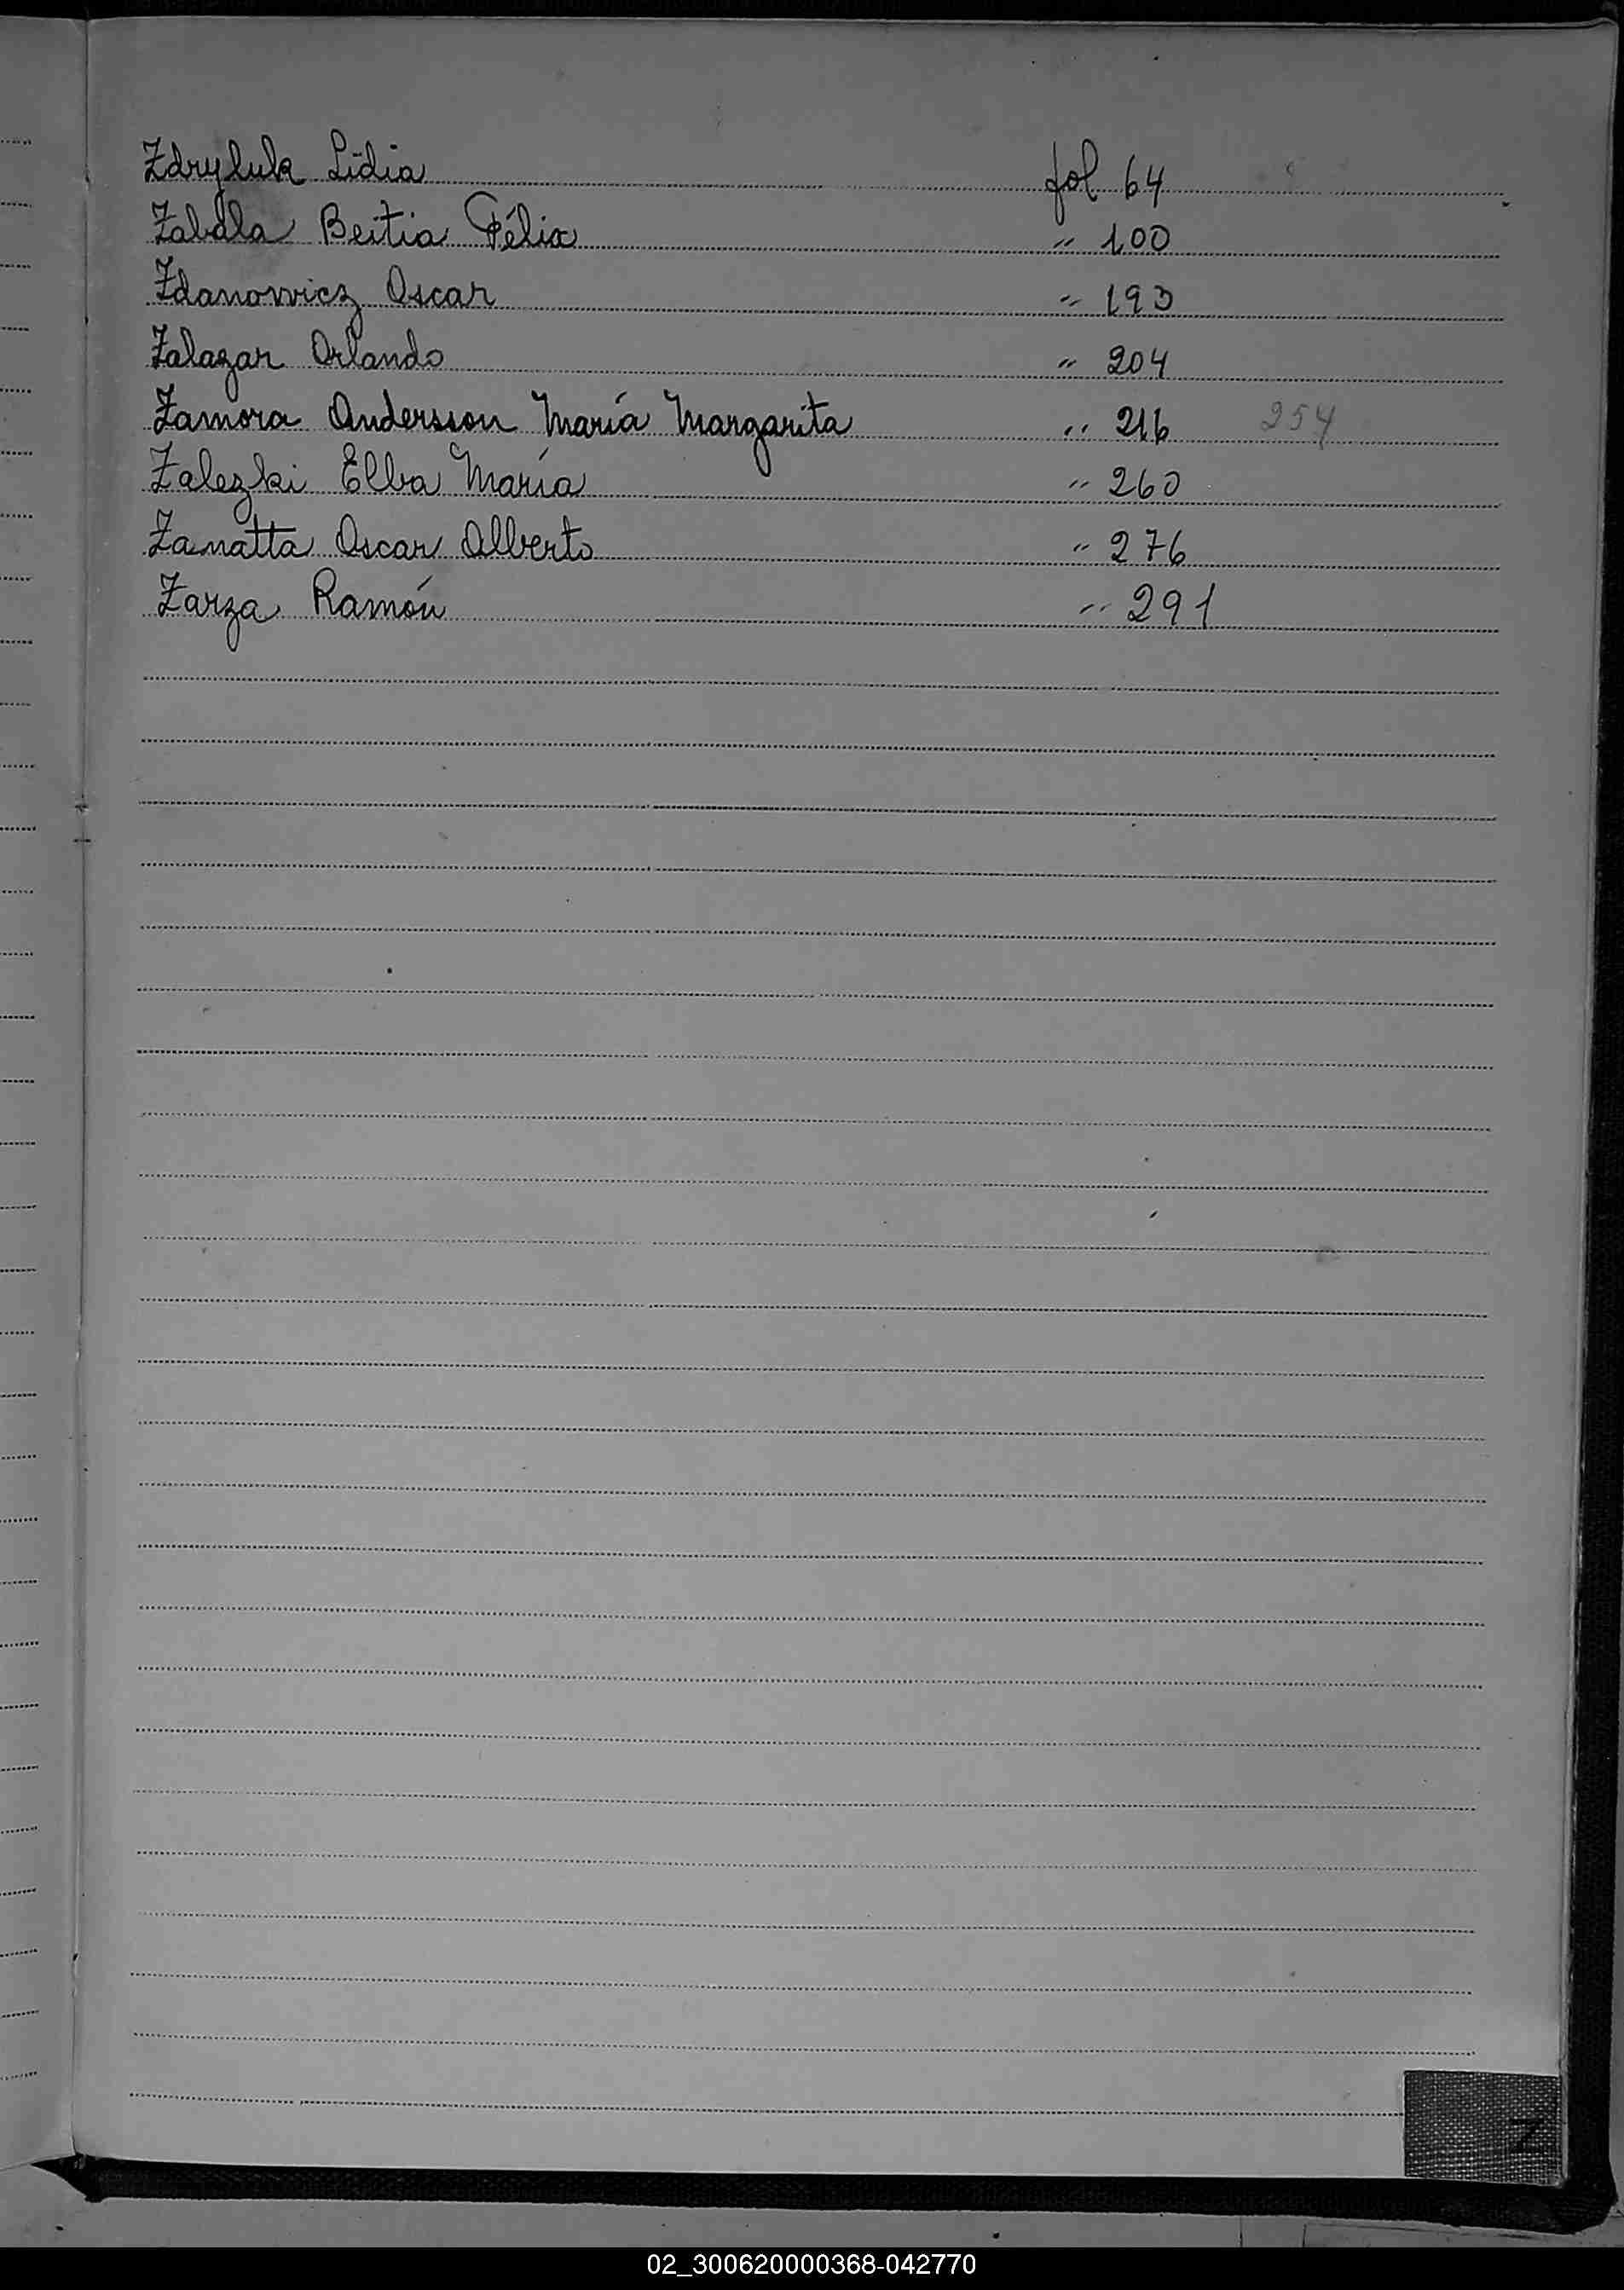 Zdryluk Lidia fol 64
Zabala Beitia Félix " 100
Zdanowicz Oscar " 193
Zalazar Orlando " 204
Zamora Andersson María Margarita " 216 254
Zalezki Elba María " 260
Zamatta Oscar Alberto " 276
Zarza Ramón " 291
Z
02_300620000368-042770